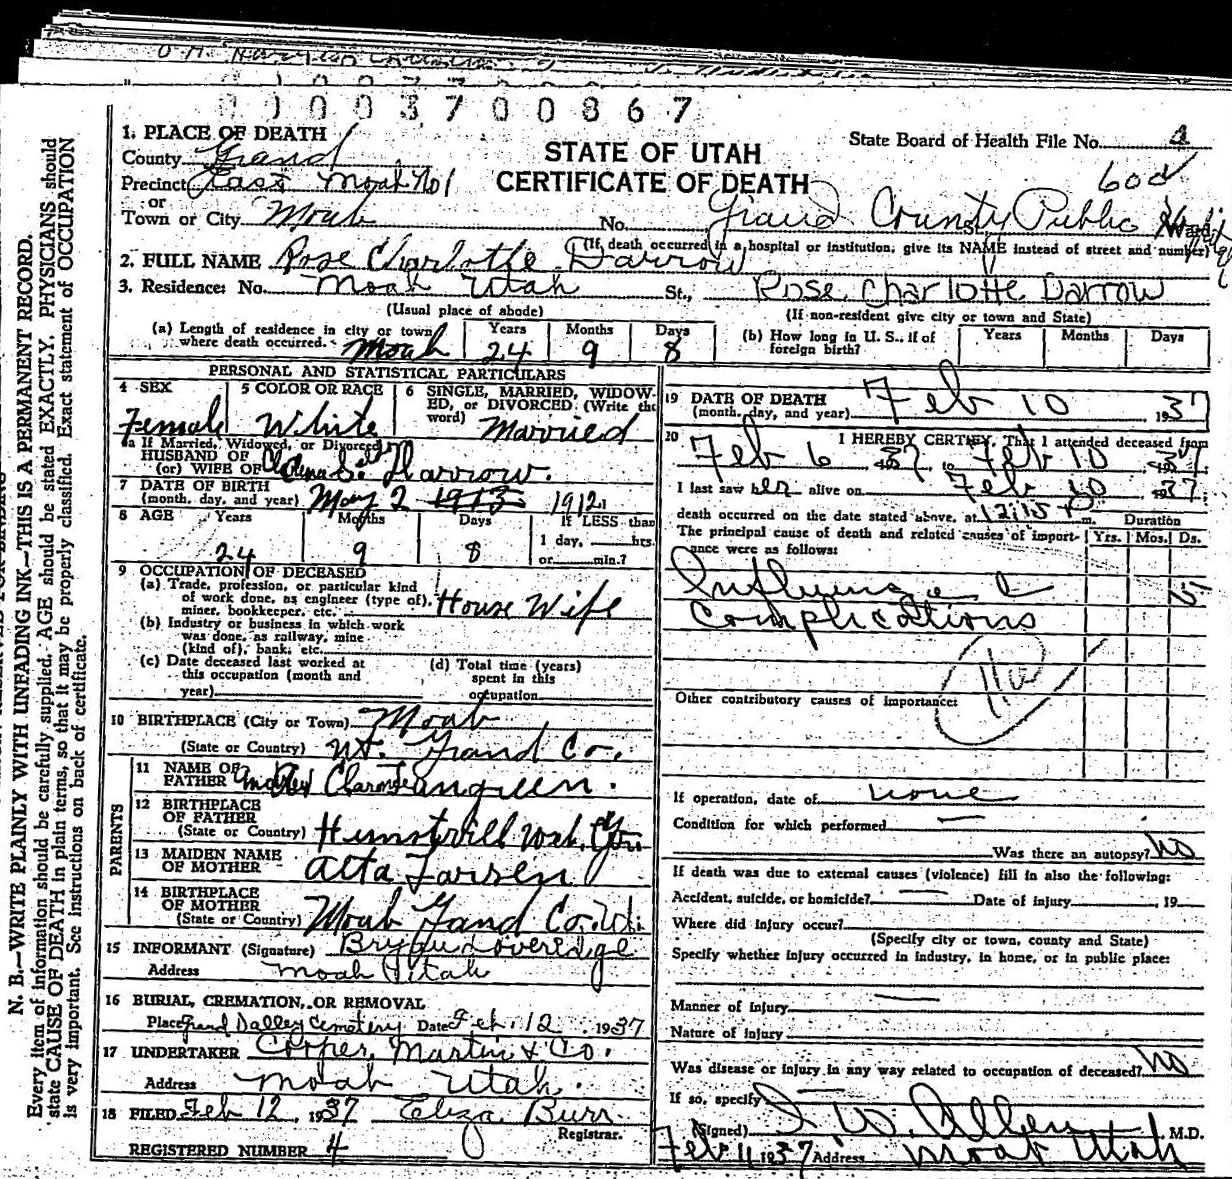 01003700867
State Board of Health File No. 4
STATE OF UTAH
CERTIFICATE OF DEATH
1. PLACE OF DEATH
County Grand
Precinct East Moab No 1
or
Town or City Moab No. Grand County Public
(If death occurred in a hospital or institution, give its NAME instead of street and number)
2. FULL NAME Rose Charlotte Darrow
3. Residence: No. Moab Utah St., Rose Charlotte Darrow
(Usual place of abode) (If non-resident give city or town and State)
(a) Length of residence in city or town where death occurred. Moab Years 24 Months 9 Days 8
(b) How long in U. S., if of foreign birth? Years Months Days
PERSONAL AND STATISTICAL PARTICULARS
4 SEX Female
5 COLOR OR RACE White
6 SINGLE, MARRIED, WIDOWED, or DIVORCED (Write the word) Married
5a If Married, Widowed, or Divorced
HUSBAND OF
(or) WIFE OF Darrow.
7 DATE OF BIRTH
(month, day, and year) May 2 1913 1912
8 AGE Years 24 Months 9 Days 8 If LESS than
1 day, hrs.
or min.?
9 OCCUPATION OF DECEASED
(a) Trade, profession, or particular kind
of work done, as engineer (type of),
miner, bookkeeper, etc. House Wife
(b) Industry or business in which work
was done, as railway, mine
(kind of), bank, etc.
(c) Date deceased last worked at
this occupation (month and
year)
(d) Total time (years)
spent in this
occupation
10 BIRTHPLACE (City or Town) Moab
(State or Country) Ut. Grand Co.
PARENTS
11 NAME OF
FATHER
12 BIRTHPLACE
OF FATHER
(State or Country)
13 MAIDEN NAME
OF MOTHER Atta Larsen
14 BIRTHPLACE
OF MOTHER
(State or Country) Moab Gand Co. Ut.
15 INFORMANT (Signature) Bryan Loveredge
Address Moab Utah
16 BURIAL, CREMATION, OR REMOVAL
Place Grand Valley Cemetery Date Feb. 12 1937
17 UNDERTAKER Cooper, Martin & Co.
Address Moab Utah.
18 FILED Feb 12, 1937 Eliza Burr
Registrar.
REGISTERED NUMBER 4
19 DATE OF DEATH
(month, day, and year) Feb 10 1937
20 I HEREBY CERTIFY, That I attended deceased from
Feb 6 1937 to Feb 10 1937
I last saw her alive on Feb 10 1937
death occurred on the date stated above, at 12:15 P m. Duration
The principal cause of death and related causes of importance were as follows: Yrs. Mos. Ds.
Influenza &
Complications
11a
Other contributory causes of importance:
If operation, date of none
Condition for which performed
Was there an autopsy? No
If death was due to external causes (violence) fill in also the following:
Accident, suicide, or homicide? Date of injury , 19
Where did injury occur?
(Specify city or town, county and State)
Specify whether injury occurred in industry, in home, or in public place:
Manner of injury
Nature of injury
Was disease or injury in any way related to occupation of deceased? No
If so, specify
(Signed) I. W. Allen M.D.
Feb 11, 1937 Address Moab Utah
N. B.—WRITE PLAINLY WITH UNFADING INK—THIS IS A PERMANENT RECORD.
Every item of information should be carefully supplied. AGE should be stated EXACTLY. PHYSICIANS should
state CAUSE OF DEATH in plain terms, so that it may be properly classified. Exact statement of OCCUPATION
is very important. See instructions on back of certificate.